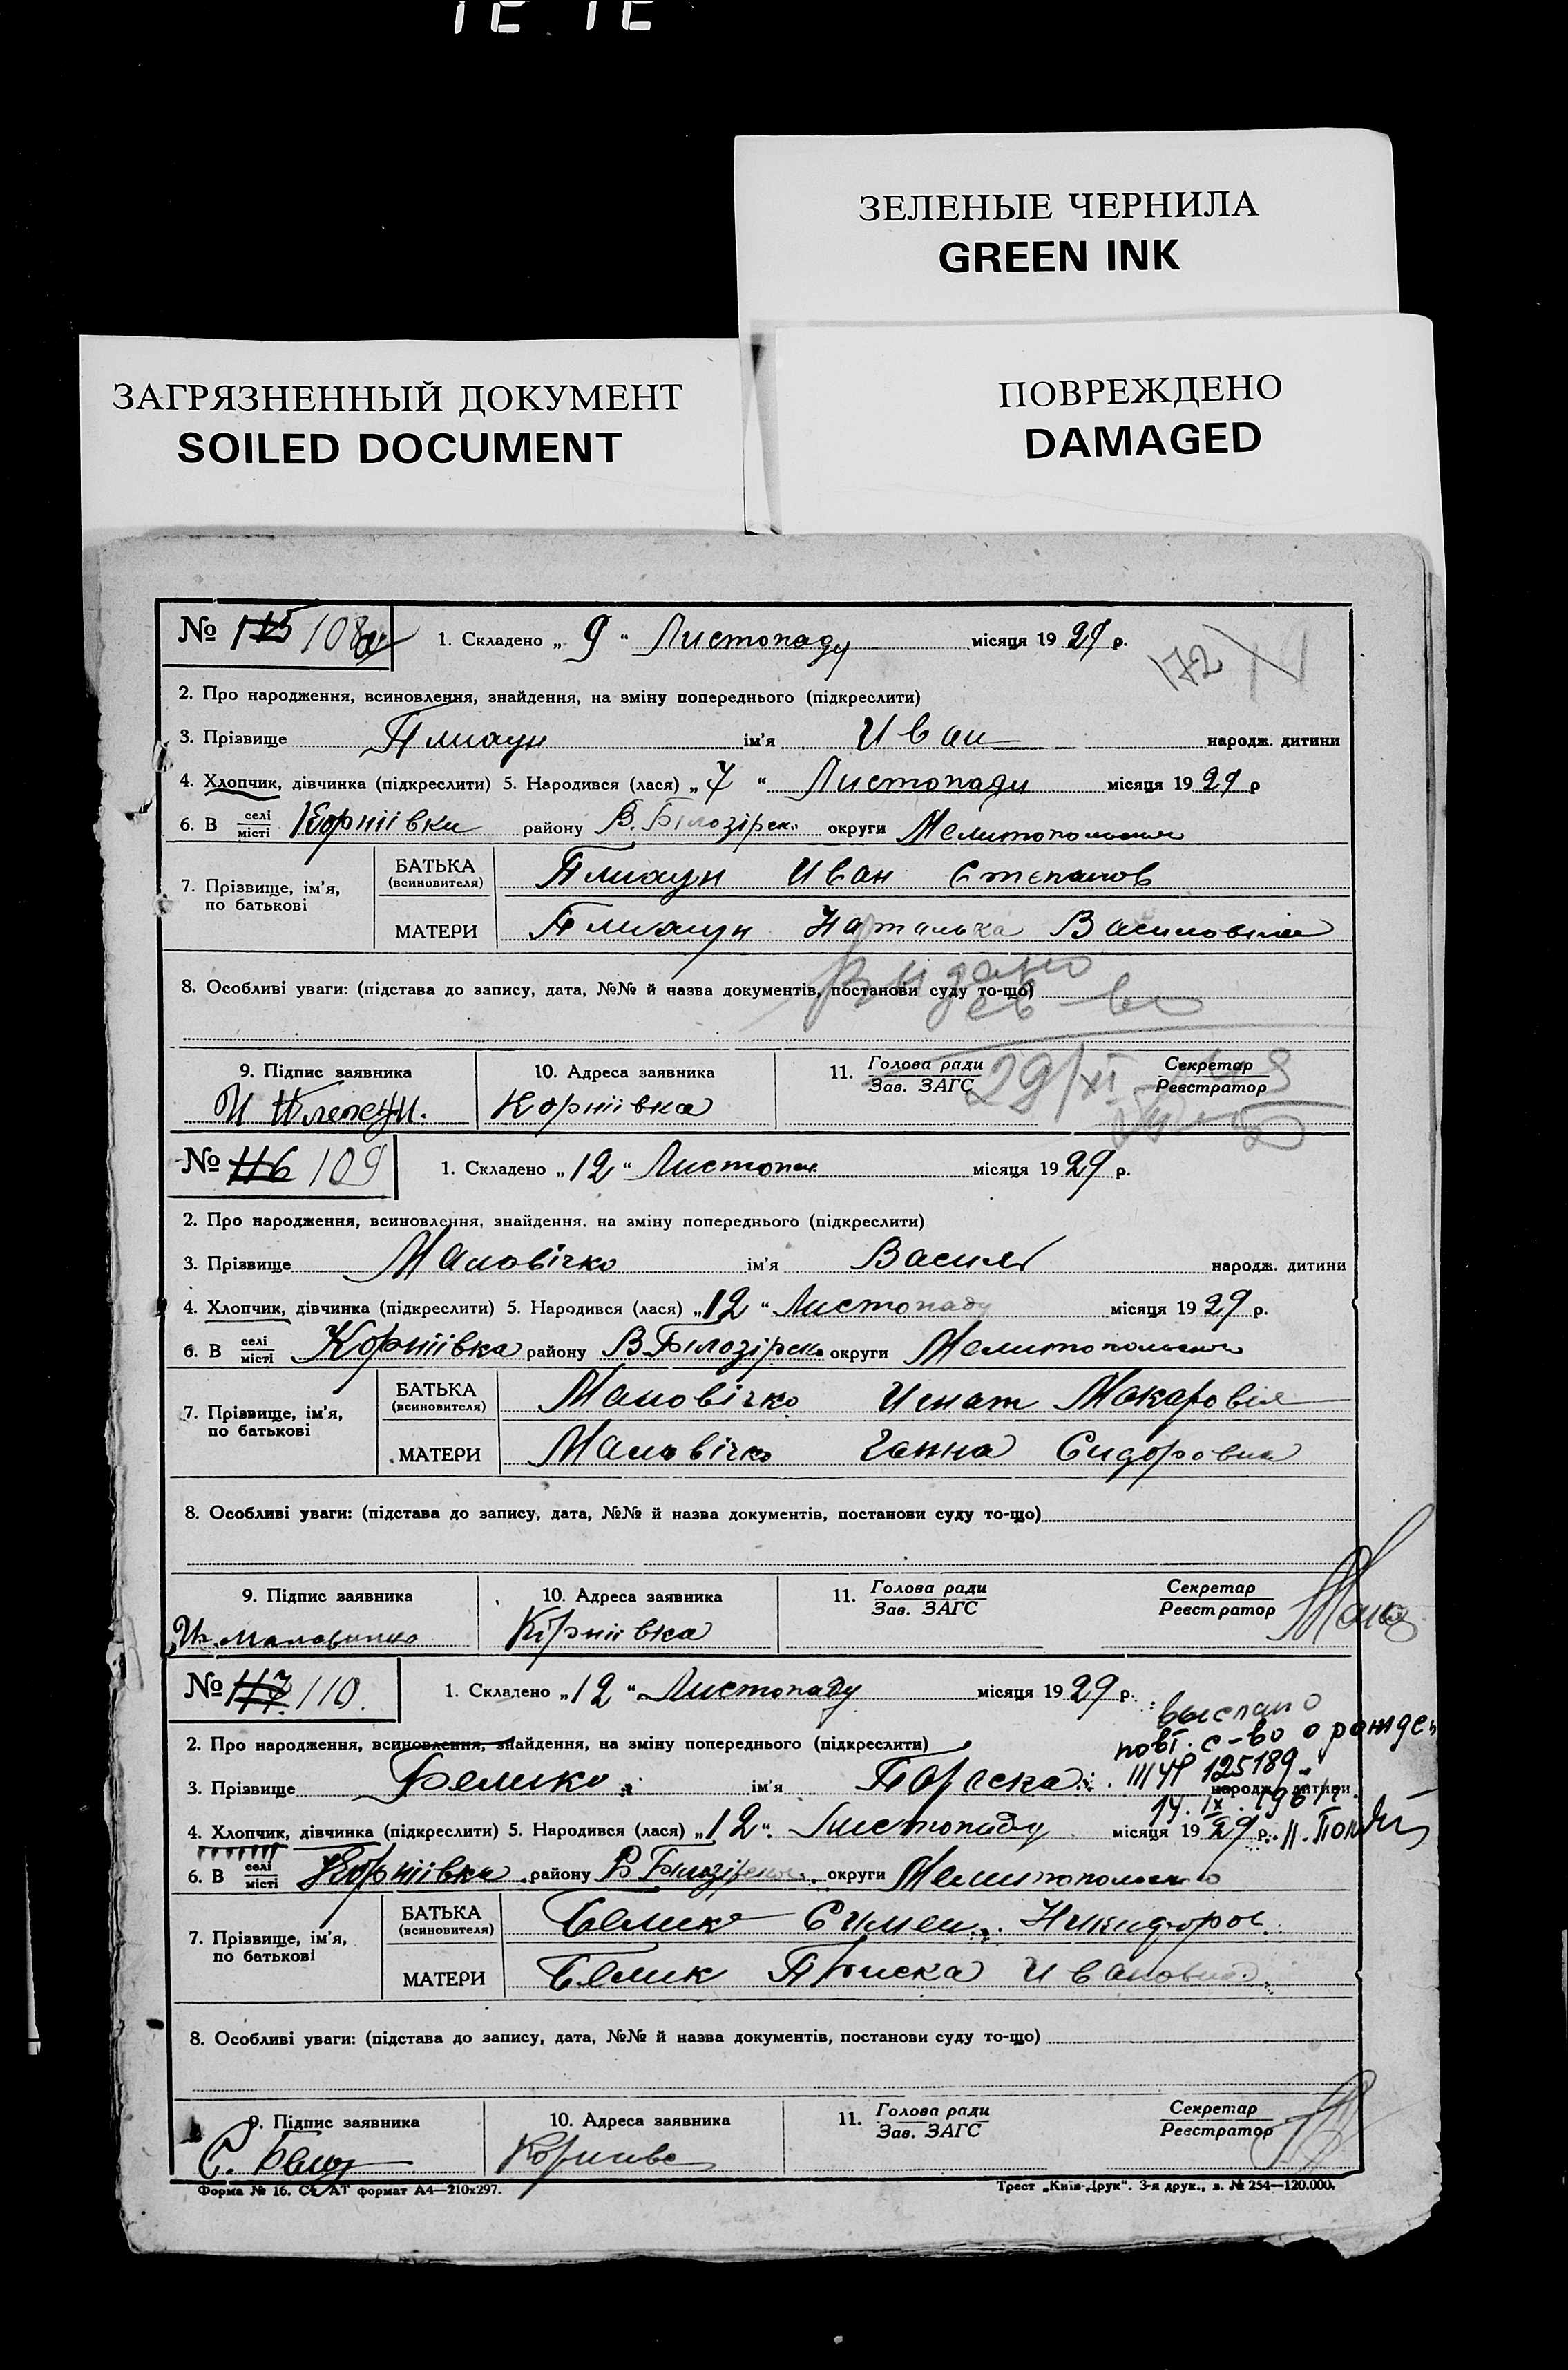 ЗЕЛЕНЫЕ ЧЕРНИЛА
GREEN INK
ЗАГРЯЗНЕННЫЙ ДОКУМЕНТ
SOILED DOCUMENT
ПОВРЕЖДЕНО
DAMAGED
№ 115 108 1. Складено „ 9 “ Листопаду місяця 1929 р.
172
2. Про народження, всиновлення, знайдення, на зміну попереднього (підкреслити)
3. Прізвище ім'я Иван народж. дитини
4. Хлопчик, дівчинка (підкреслити) 5. Народився (лася) „ 7 “ Листопади місяця 1929 р
6. В селі/місті Корніівки району В. Білозірськ округи Мелитопольськ
7. Прізвище, ім'я, по батькові БАТЬКА (всиновителя) Иван Степанов
МАТЕРИ Наталька Василовна
8. Особливі уваги: (підстава до запису, дата, №№ й назва документів, постанови суду то-що)
Видано св-во
9. Підпис заявника 10. Адреса заявника 11. Голова ради/Зав. ЗАГС Секретар/Реєстратор
Корніівка 29/XI
№ 116 109 1. Складено „ 12 “ Листопа місяця 1929 р.
2. Про народження, всиновлення, знайдення, на зміну попереднього (підкреслити)
3. Прізвище Маловічко ім'я Василь народж. дитини
4. Хлопчик, дівчинка (підкреслити) 5. Народився (лася) „ 12 “ Листопаду місяця 1929 р.
6. В селі/місті Корніівка району В Білозірськ округи Мелитопольськ
7. Прізвище, ім'я, по батькові БАТЬКА (всиновителя) Маловічко Игнат Макаровіч
МАТЕРИ Маловічко Ганна Сидоровна
8. Особливі уваги: (підстава до запису, дата, №№ й назва документів, постанови суду то-що)
9. Підпис заявника 10. Адреса заявника 11. Голова ради/Зав. ЗАГС Секретар/Реєстратор
Иг. Маловичко Корніівка
№ 117 110. 1. Складено „ 12 “ Листопаду місяця 1929 р.
выслано
повт. с-во о рожден
2. Про народження, всиновлення, знайдення, на зміну попереднього (підкреслити)
125189
3. Прізвище Белико ім'я Параска народж. дитини
14. IX.
4. Хлопчик, дівчинка (підкреслити) 5. Народився (лася) „ 12 “ Листопаду місяця 1929 р.
6. В селі/місті Корніівка району В Білозірськ округи Мелитопольського
7. Прізвище, ім'я, по батькові БАТЬКА (всиновителя) Белик Симен Никифоров
МАТЕРИ Белик Ивановна
8. Особливі уваги: (підстава до запису, дата, №№ й назва документів, постанови суду то-що)
9. Підпис заявника 10. Адреса заявника 11. Голова ради/Зав. ЗАГС Секретар/Реєстратор
С. Белик
Форма № 16. Ст. АТ формат А4—210х297. Трест „Київ-Друк“. 3-я друк., з. № 254—120.000.